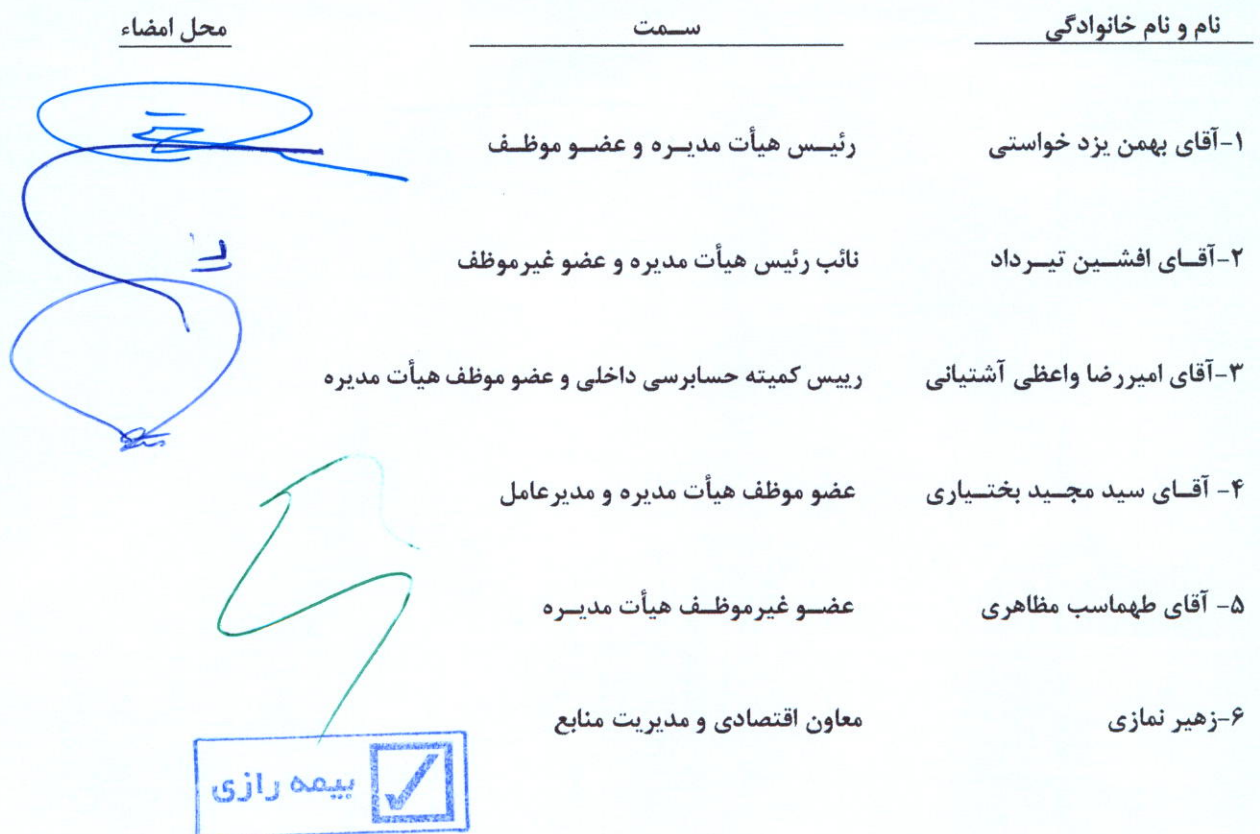 نام و نام خانوادگی ســمت محل امضاء
۱-آقای بهمن یزد خواستی رئیــس هیأت مدیــره و عضــو موظــف
۲-آقــای افشــین تیــرداد نائب رئیس هیأت مدیره و عضو غیرموظف
۳-آقای امیررضا واعظی آشتیانی رییس کمیته حسابرسی داخلی و عضو موظف هیأت مدیره
۴- آقــای سید مجــید بختــیاری عضو موظف هیأت مدیره و مدیرعامل
۵- آقای طهماسب مظاهری عضــو غیرموظــف هیأت مدیــره
۶-زهیر نمازی معاون اقتصادی و مدیریت منابع
بیمه رازی